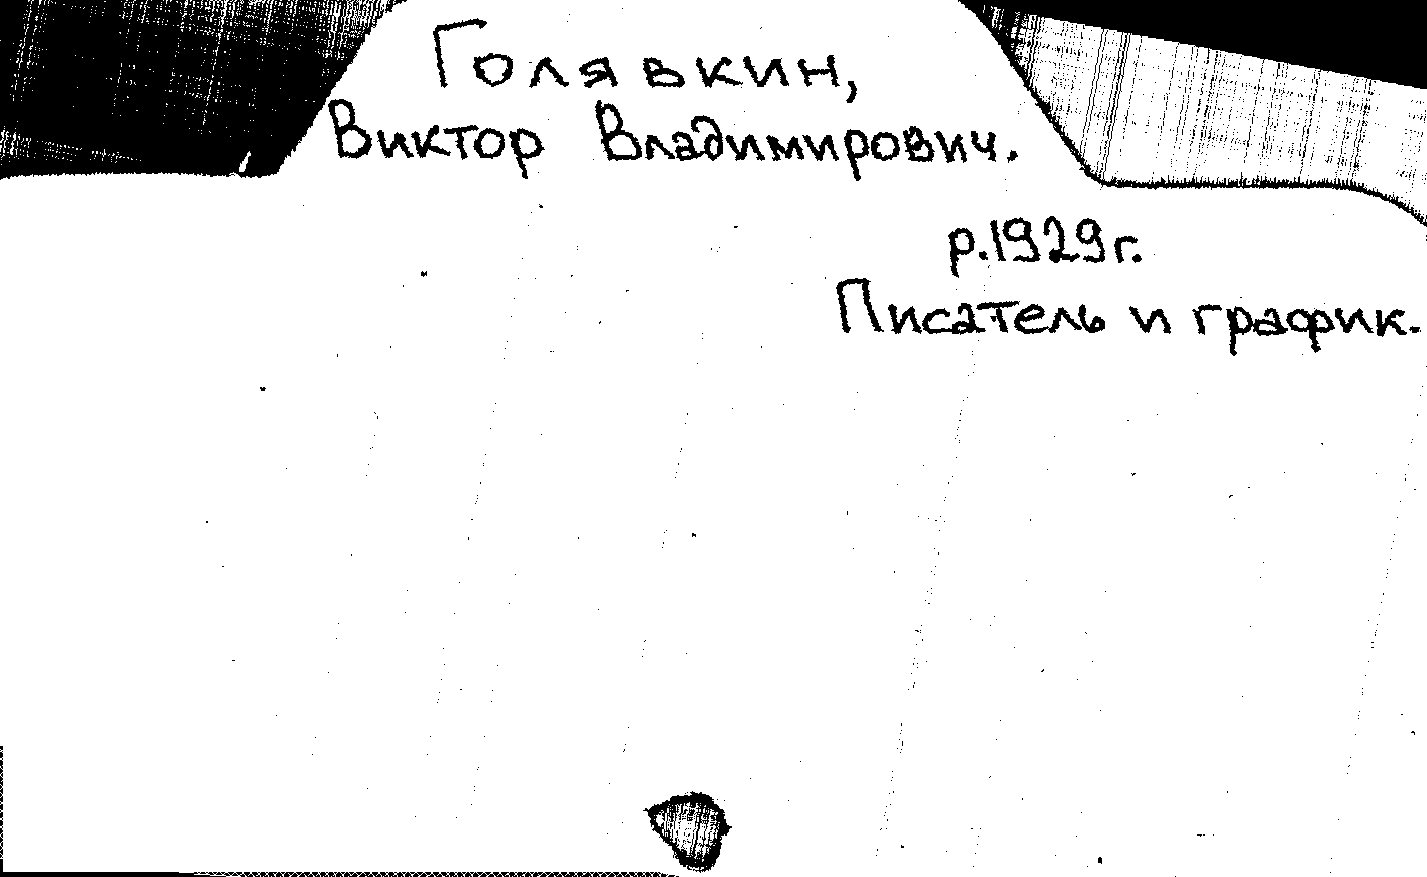 Голявкин,
Виктор Владимирович.
р.1929г.
Писатель и график.